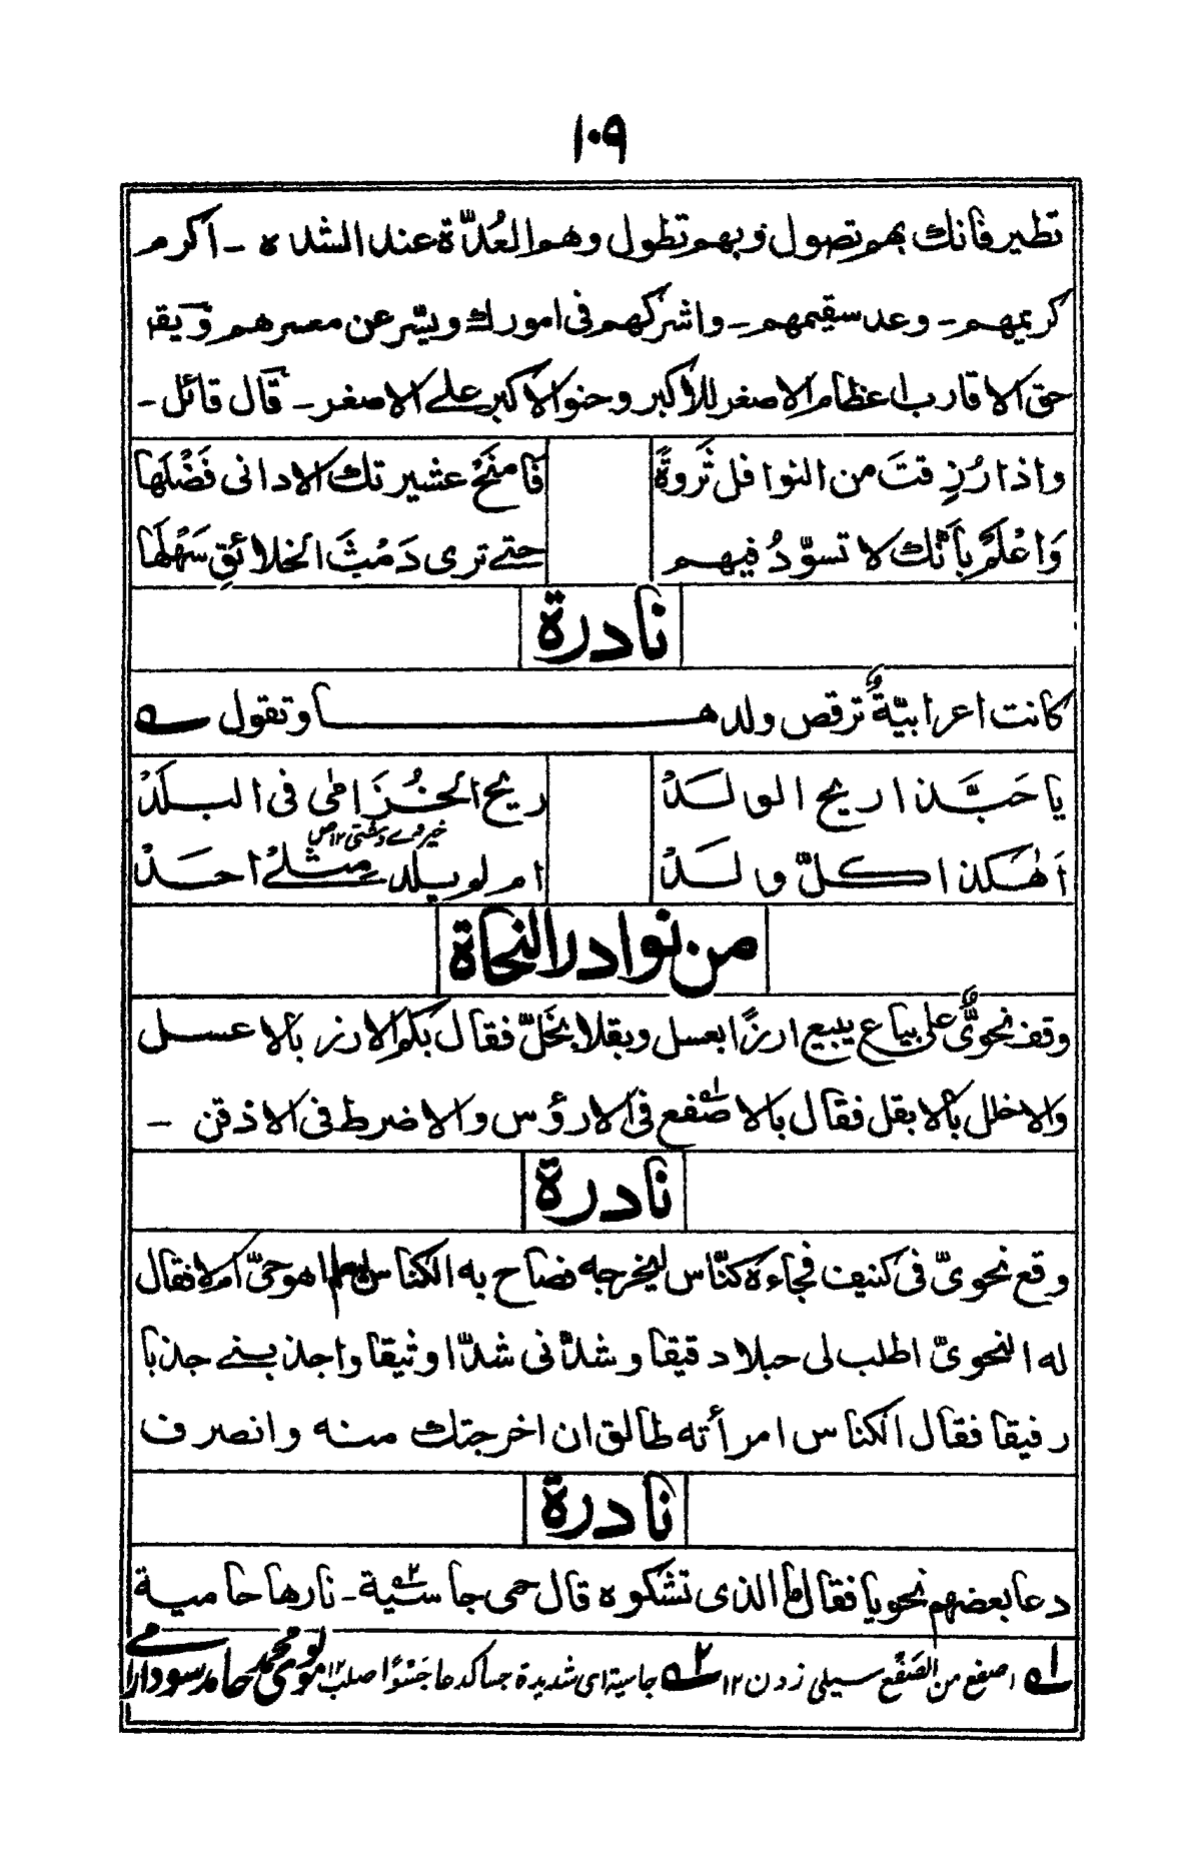 ١٠٩
تطير فانك بهم تصول وبهم تطول وهم العُدّة عند الشده - اكرم
كريمهم - وعد سقيمهم - واشركهم فى امورك ويسّر عن معسرهم وّيقا
حق الاقارب اعظام الاصغر للاكبر وحنو الاكبر على الاصغر - قال قائل -
واذا رُزِقتَ من النوافل ثَروةً فامنَحْ عشيرتك الادانى فَضْلَها
وَاعْلَمْ بأَنّك لا تسوّدُ فيهم حتے ترى دَمْثَ الخلائقِ سَهْلَها
نادرة
كانت اعرابيّةٌ ترقص ولدها وتقول
يا حَبَّذا ريح الولَدْ ريح الخُزَامٰى فى البلَدْ
خيرے دشتى ١٢
أهٰكذا كلّ ولَدْ ام لم يلد مثلے احَدْ
من نوادر النحاة
وقف نحوىٌّ على بياع يبيع ارزًا بعسل وبقلا بخَلّ فقال بكم الارز بالاعسل
والاخلل بالابقل فقال بالاصفع فى الارؤس والاضرط فى الاذقن -
نادرة
وقع نحوىّ فى كنيف فجاءه كنّاس ليخرجه فصاح به الكناس ليعلم اهو حىّ ام لا فقال
له النحوىّ اطلب لى حبلا دقيقا وشدّنى شدّا وثيقا واجذبنے جذبا
رفيقا فقال الكناس امرأته طالق ان اخرجتك منه وانصرف
نادرة
دعا بعضهم نحويا فقال ما الذى تشكوه قال حمى جاسية - نارها حامية
١ اصفع من الصَفْع سيلى زدن ١٢ ٢ جاسية اى شديدة جسا كدعا جَسْوًا صلب ١٢ مولوى محمد حامد سودارامى